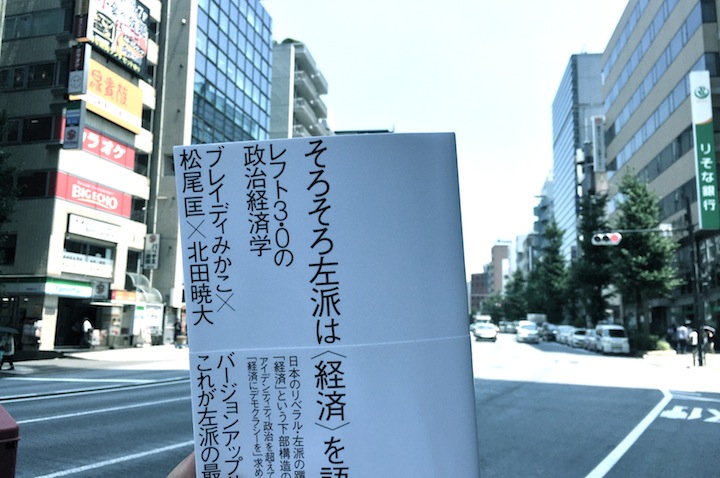 そろそろ左派は〈経済〉を語
レフト3.0の
政治経済学
ブレイディみかこ×
松尾匡×北田暁大
日本のリベラル・左派の躓
「経済」という下部構造の
アイデンティティ政治を超えて
「経済にデモクラシーを」求め
バージョンアップせ
これが左派の最
品貴族
カラオケ
BIG ECHO
りそな銀行